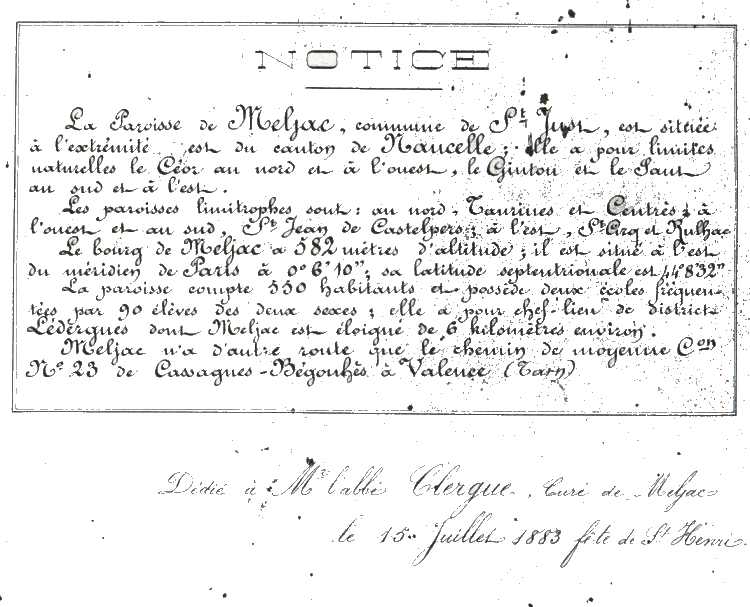 NOTICE
La Paroisse de Meljac, commune de St Just, est située
à l'extrémité est du canton de Naucelle; elle a pour limites
naturelles le Céor au nord et à l'ouest, le Giffou et le Saut
au sud et à l'est.
Les paroisses limitrophes sont: au nord, Taurines et Centrès; à
l'ouest et au sud, St Jean de Castelpers; à l'est, St Cirq et Rulhac
Le bourg de Meljac a 582 mètres d'altitude; il est situé à l'est
du méridien de Paris à 0° 6' 10"; sa latitude septentrionale est 44° 8' 32"
La paroisse compte 550 habitants et possède deux écoles fréquen-
tées par 90 élèves des deux sexes; elle a pour chef-lieu de district
Lédergues dont Meljac est éloigné de 6 kilomètres environ.
Meljac n'a d'autre route que le chemin de moyenne Con
No 23 de Cassagnes-Bégonhès à Valence (Tarn)
Dédié à Mr l'abbé Clergue, Curé de Meljac
le 15 Juillet 1883 fête de St Henri.